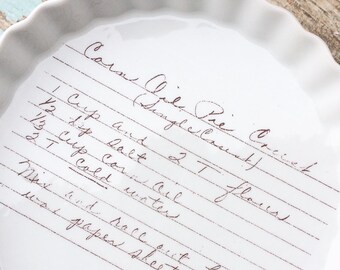 Corn Oil Pie Crust
(Single Crust)
1 Cup and 2 T flour
1/2 tsp salt
1/3 Cup Corn Oil
2 T Cold water
Mix and roll out
wax paper sheets